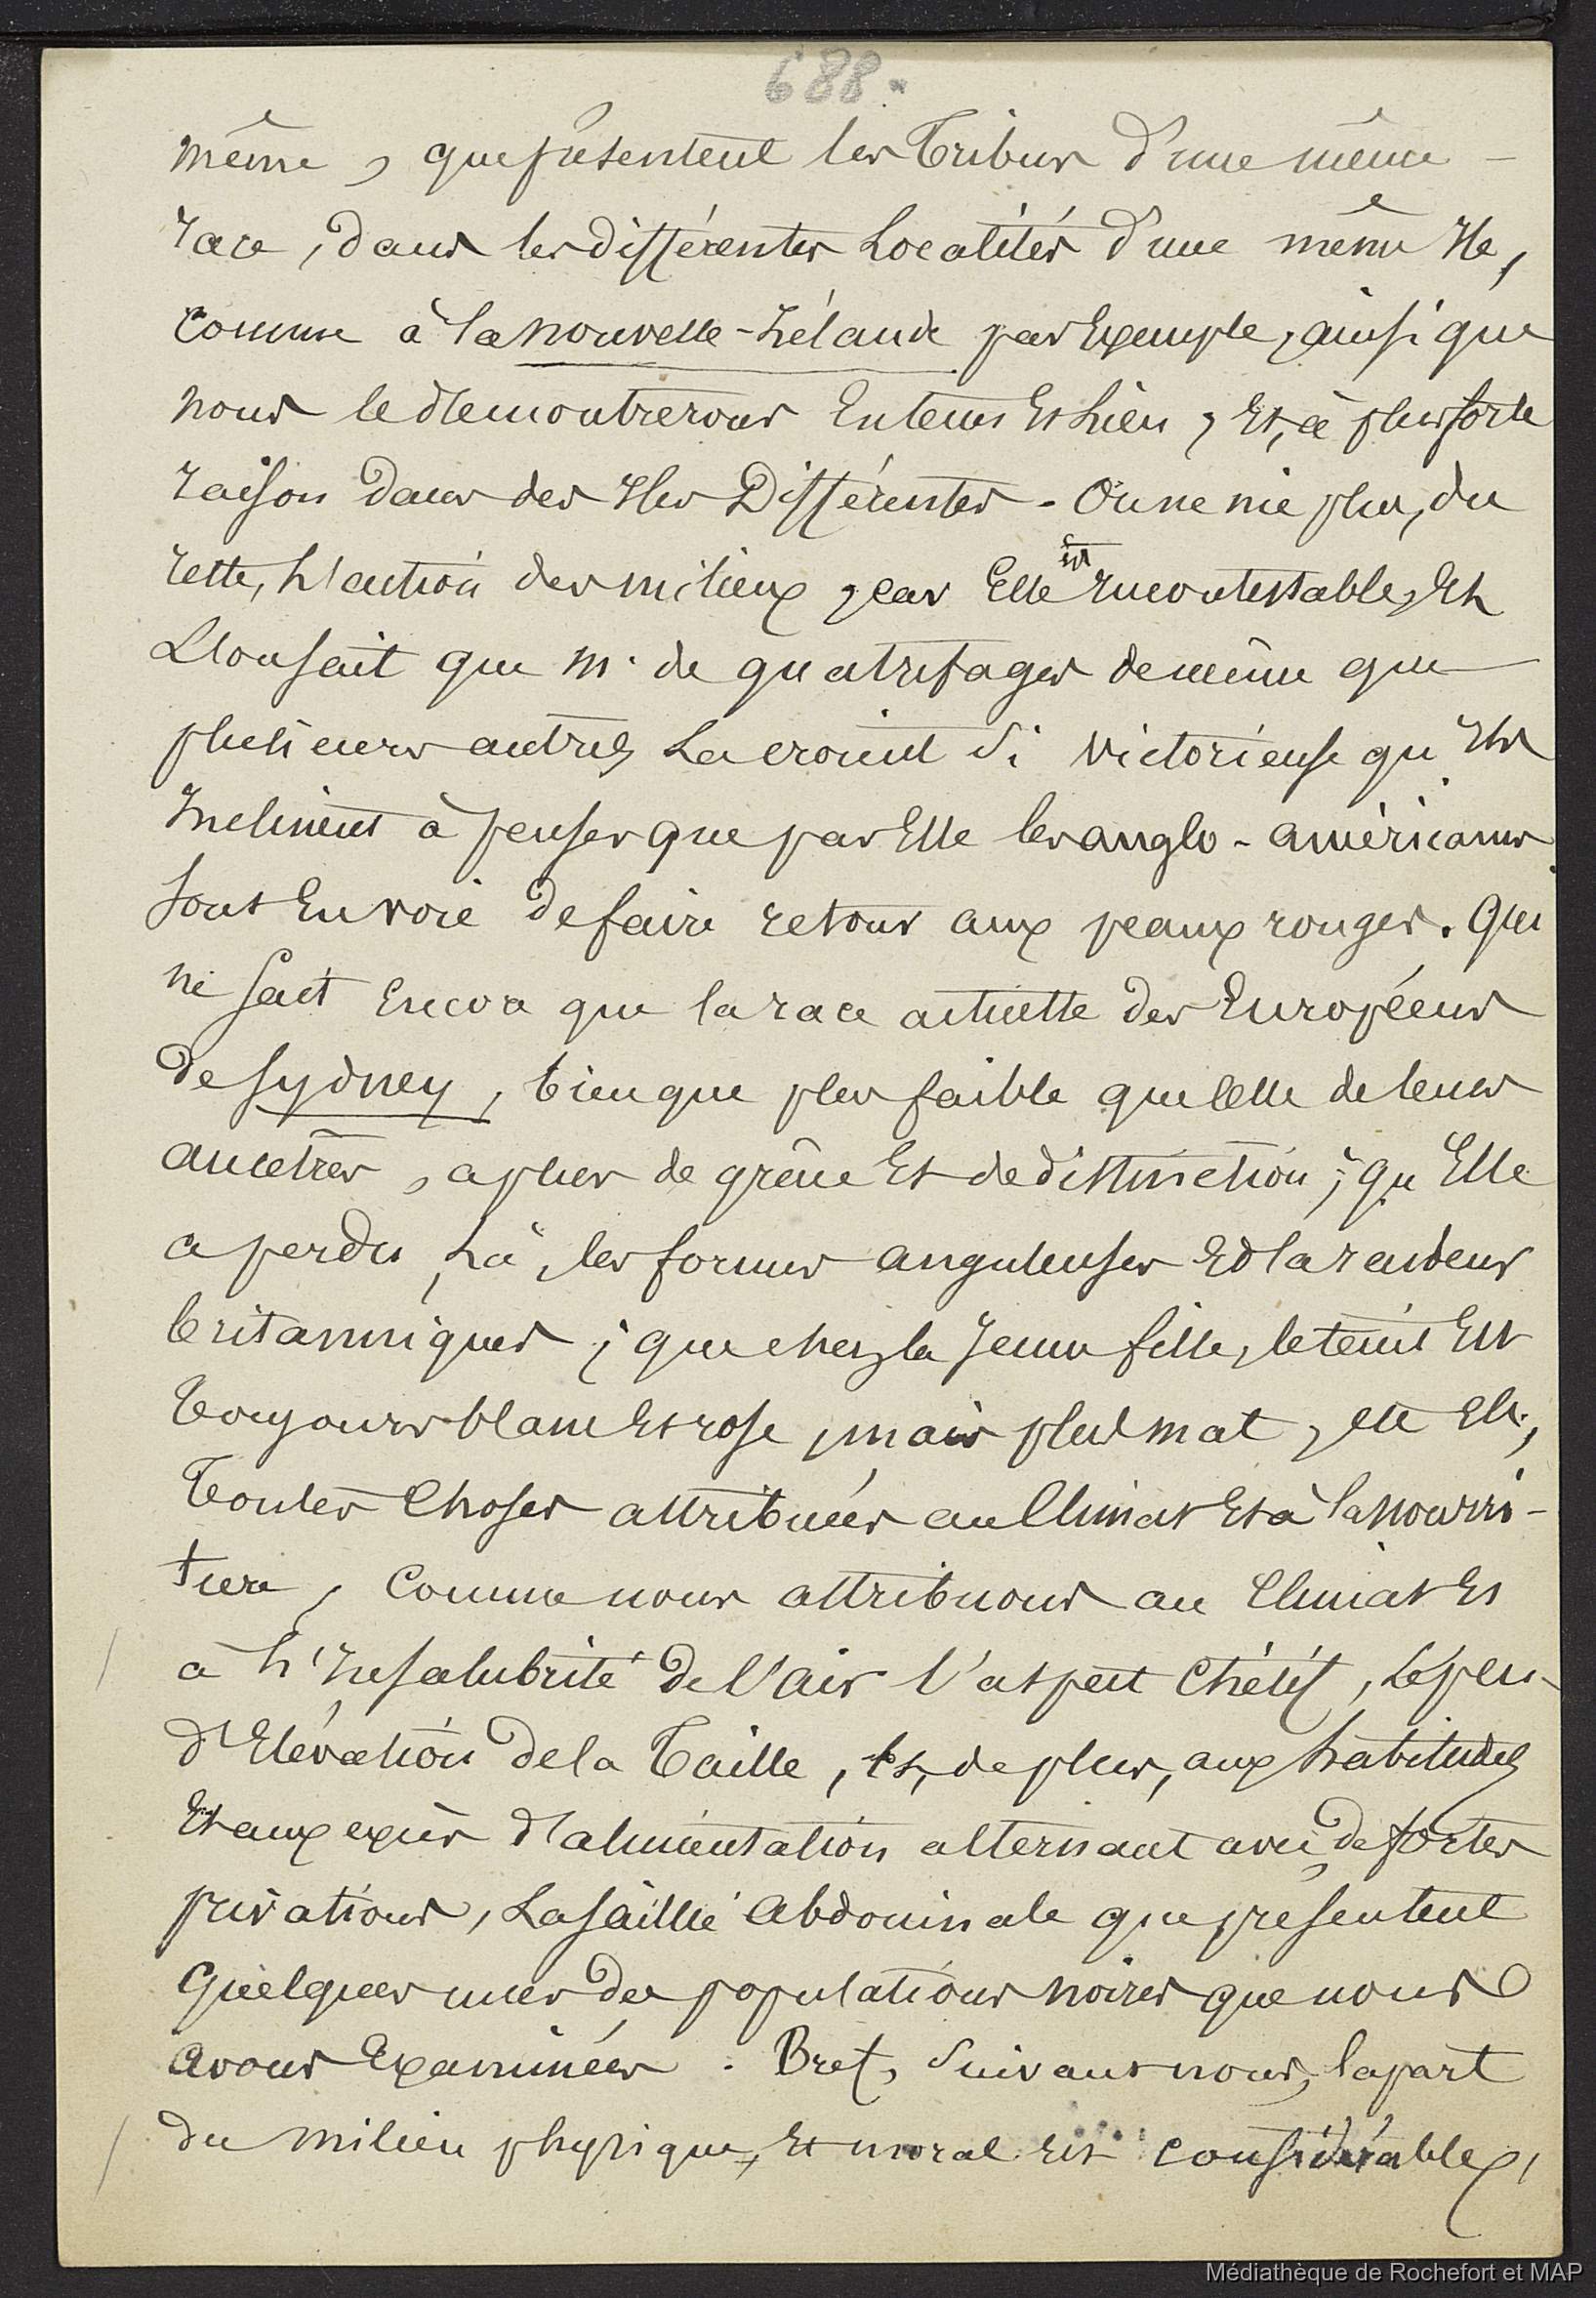 688.
même, que présentent les Tribus d'une même
race, dans les différentes Localités d'une même Ile,
comme à la nouvelle-Zélande par Exemple, ainsi que
nous le démontrerons En tems Et Lieu, Et, à plus forte
raison dans des Iles Différentes. On ne nie plus, du
reste, L'action des milieux, car Elle est Incontestable, Et
L'on sait que M. de quatrefages de même que
plusieurs autres, La croient si victorieuse qu'Ils
Inclinent à penser que par Elle les anglo-américains
sont En voie de faire retour aux peaux rouges. Qui
ne sait Encore que la race actuelle des Européens
de Sydney, bien que plus faible que celle de leurs
ancêtres, a plus de grâce Et de distinction; qu'Elle
a perdu, Là, les formes anguleuses Et la raideur
britanniques; que chez la Jeune fille, le teint Est
Toujours blanc Et rose, mais plus mat, etc Etc,
Toutes Choses attribuées au Climat Et à la nourri-
ture, comme nous attribuons au Climat Et
à L'Insalubrité de l'air l'aspect chétif, Le peu
d'Elévation de la Taille, Et, de plus, aux habitudes
Et aux excès d'alimentation alternant avec de fortes
privations, La saillie abdominale que présentent
quelques unes des populations noires que nous
avons Examinées. Bref, suivant nous, la part
du milieu physique, Et moral Est considérable,
Médiathèque de Rochefort et MAP